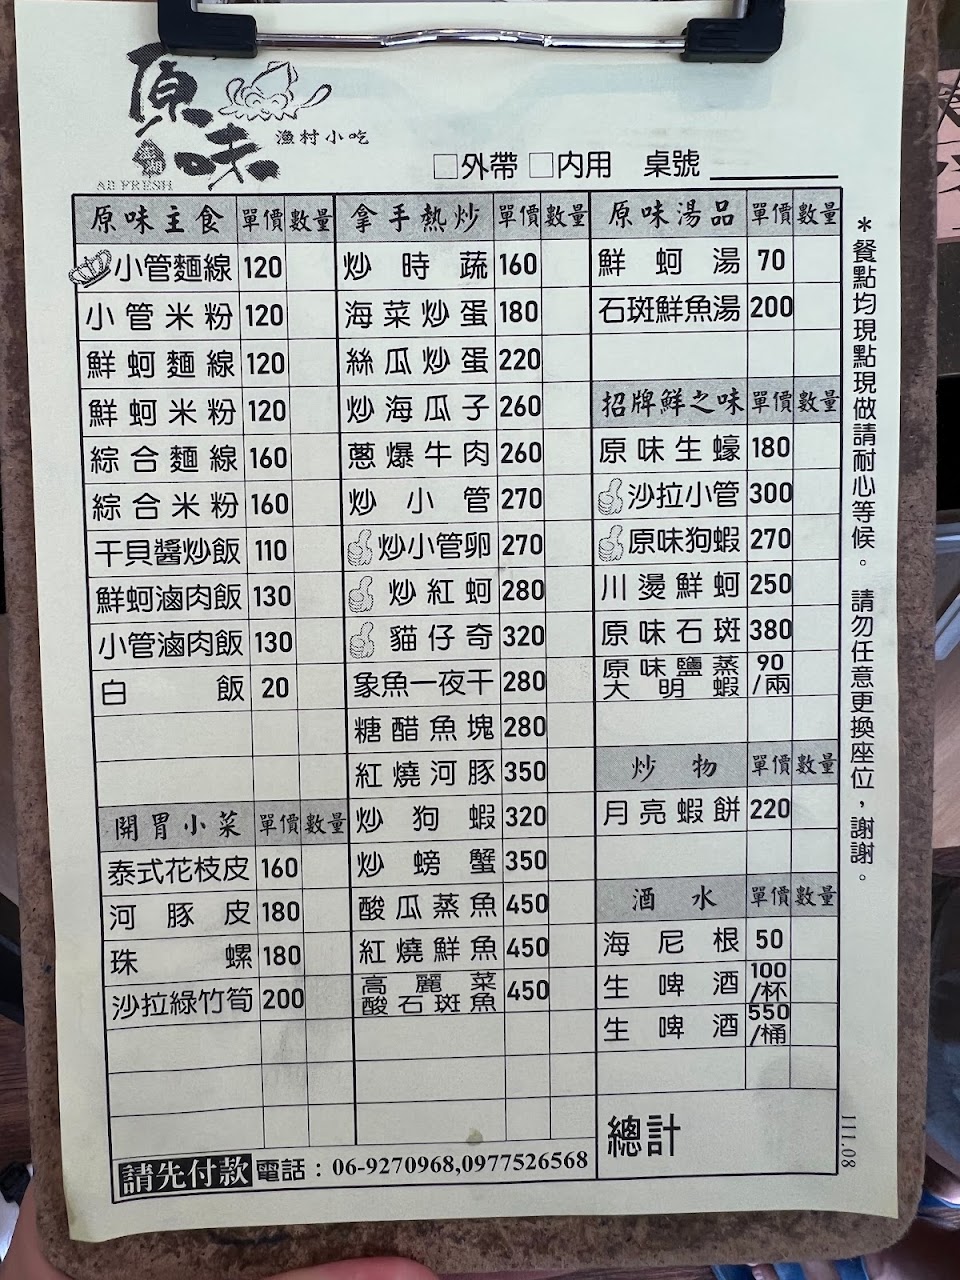 原味
澎湖
AB FRESH
漁村小吃
□外帶 □內用 桌號
原味主食 單價 數量
小管麵線 120
小管米粉 120
鮮蚵麵線 120
鮮蚵米粉 120
綜合麵線 160
綜合米粉 160
干貝醬炒飯 110
鮮蚵滷肉飯 130
小管滷肉飯 130
白飯 20
開胃小菜 單價 數量
泰式花枝皮 160
河豚皮 180
珠螺 180
沙拉綠竹筍 200
拿手熱炒 單價 數量
炒時蔬 160
海菜炒蛋 180
絲瓜炒蛋 220
炒海瓜子 260
蔥爆牛肉 260
炒小管 270
炒小管卵 270
炒紅蚵 280
貓仔奇 320
象魚一夜干 280
糖醋魚塊 280
紅燒河豚 350
炒狗蝦 320
炒螃蟹 350
酸瓜蒸魚 450
紅燒鮮魚 450
高麗菜
酸石斑魚 450
原味湯品 單價 數量
鮮蚵湯 70
石斑鮮魚湯 200
招牌鮮之味 單價 數量
原味生蠔 180
沙拉小管 300
原味狗蝦 270
川燙鮮蚵 250
原味石斑 380
原味鹽蒸 90
大明蝦 /兩
炒物 單價 數量
月亮蝦餅 220
酒水 單價 數量
海尼根 50
生啤酒 100/杯
生啤酒 550/桶
總計
請先付款 電話：06-9270968,0977526568
＊餐點均現點現做請耐心等候。請勿任意更換座位，謝謝。
111.08